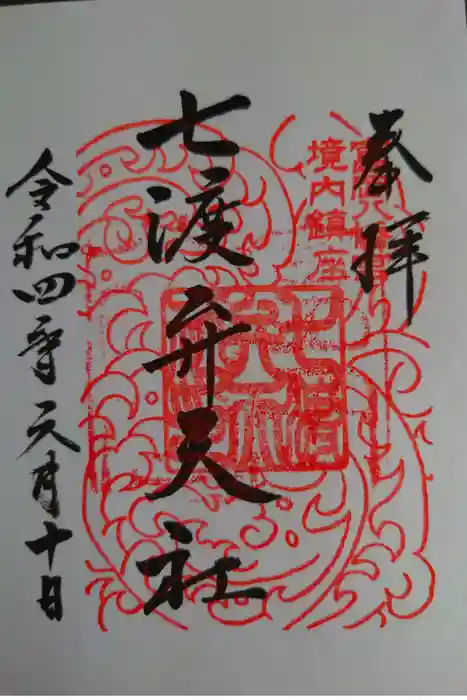 奉拝
境内鎮座
七渡弁天社
令和四年元月十日